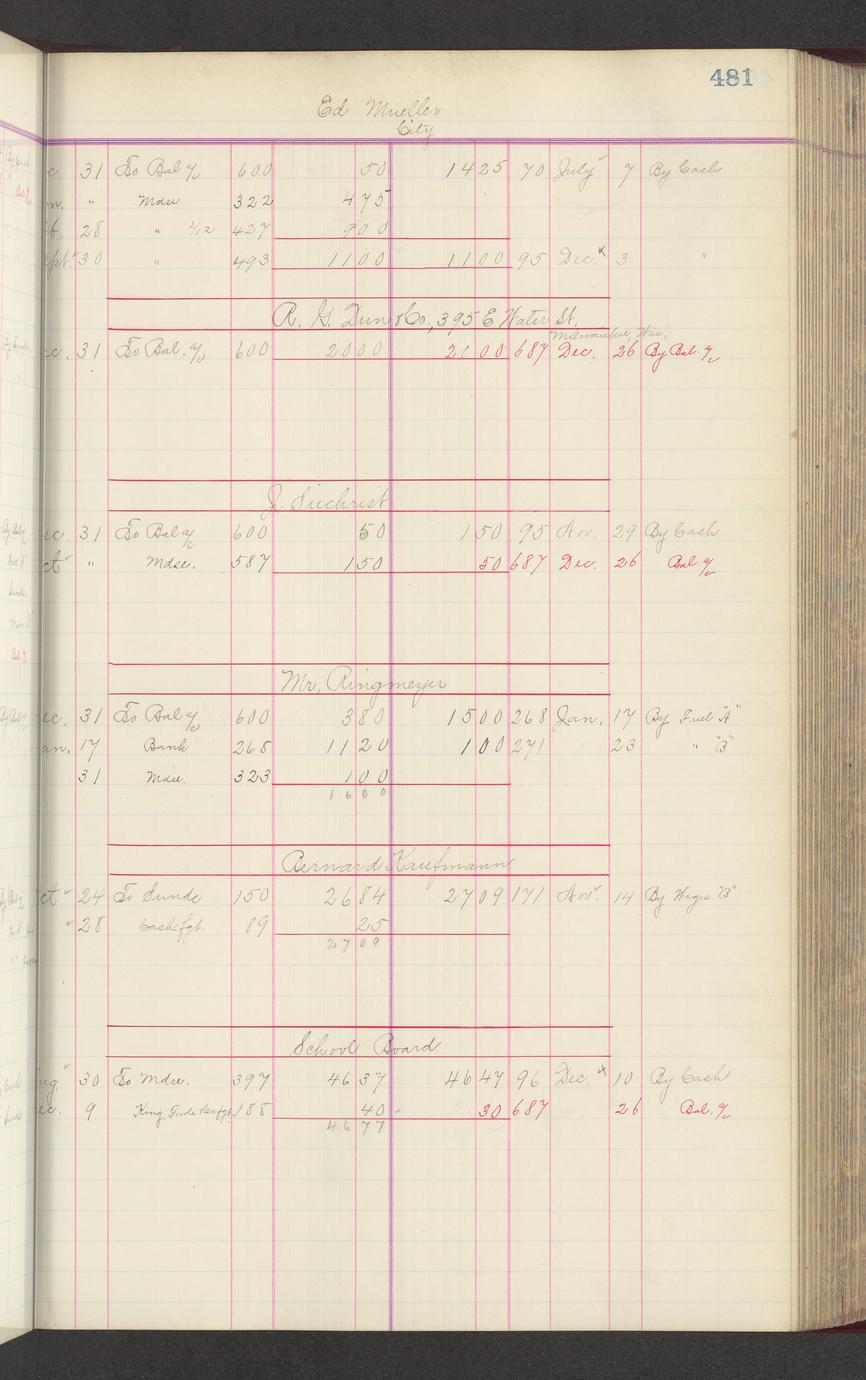 481
Ed Mueller
City
c. 31 To Bal a/c 600 50 1425 70 July 7 By Cash
n. " Mdse 322 475
b. 28 " 2/12 427 900
pt. 30 " 493 1100 1100 95 Dec. 3 "
R. G. Dun & Co, 395 E Water St,
Milwaukee, Wis,
ec. 31 To Bal. a/c 600 2000 2000 687 Dec. 26 By Bal. a/c
J. Siechrist
ec. 31 To Bal a/c 600 50 150 95 Nov. 29 By Cash
ct " Mdse. 587 150 50 687 Dec. 26 Bal. a/c
Mr. Ringmeyer
ec. 31 To Bal a/c 600 380 1500 268 Jan. 17 By Fuel "A"
an. 17 Bank 268 1120 100 271 23 " "B"
31 Mdse. 323 100
1600
Bernard Kaufmann
ct 24 To Sunds 150 2684 2709 171 Nov. 14 By Wages "B"
28 Cash fgt. 89 25
2709
School Board
ug. 30 To Mdse. 397 4637 4647 96 Dec. 10 By Cash
ec. 9 King, Fowle & Co fgt 188 40 30 687 26 Bal. a/c
4677